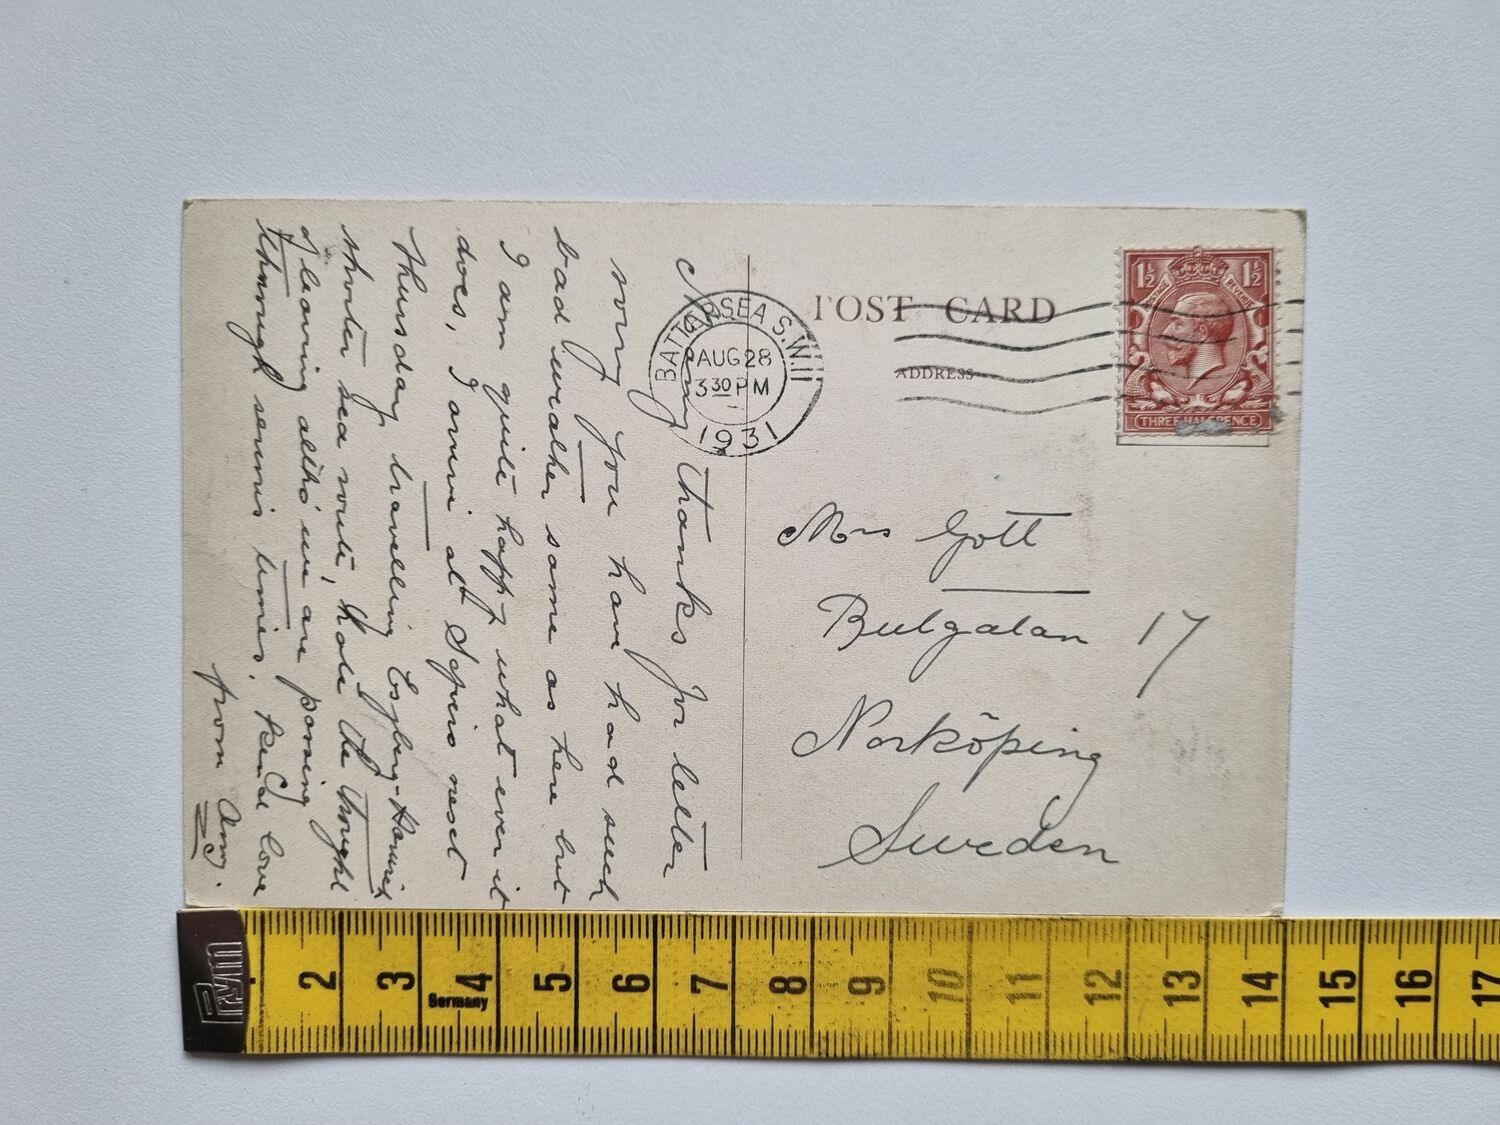 POST CARD
ADDRESS
BATTERSEA S.W.11
AUG 28
3 30 PM
1931
1½ 1½
POSTAGE REVENUE
THREE HALFPENCE
Mrs Gott
Bulgatan 17
Norköping
Sweden
Many Thanks for letter
sorry you have had such
bad weather same as here but
I am quite happy what ever it
does, I arrive at Spiro next
Thursday travelling Esbjerg-Harwich
shorter sea route, hate the thought
of leaving altho' we are passing
through serious times. Kind love
from Amy.
Prym
1 2 3 4 5 6 7 8 9 10 11 12 13 14 15 16 17
Germany